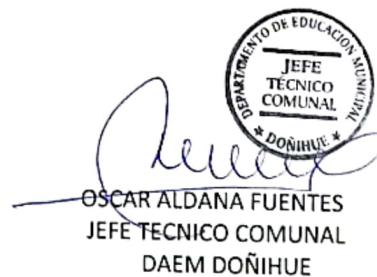 DEPARTAMENTO DE EDUCACION MUNICIPAL
JEFE
TÉCNICO
COMUNAL
* DOÑIHUE *
OSCAR ALDANA FUENTES
JEFE TECNICO COMUNAL
DAEM DOÑIHUE